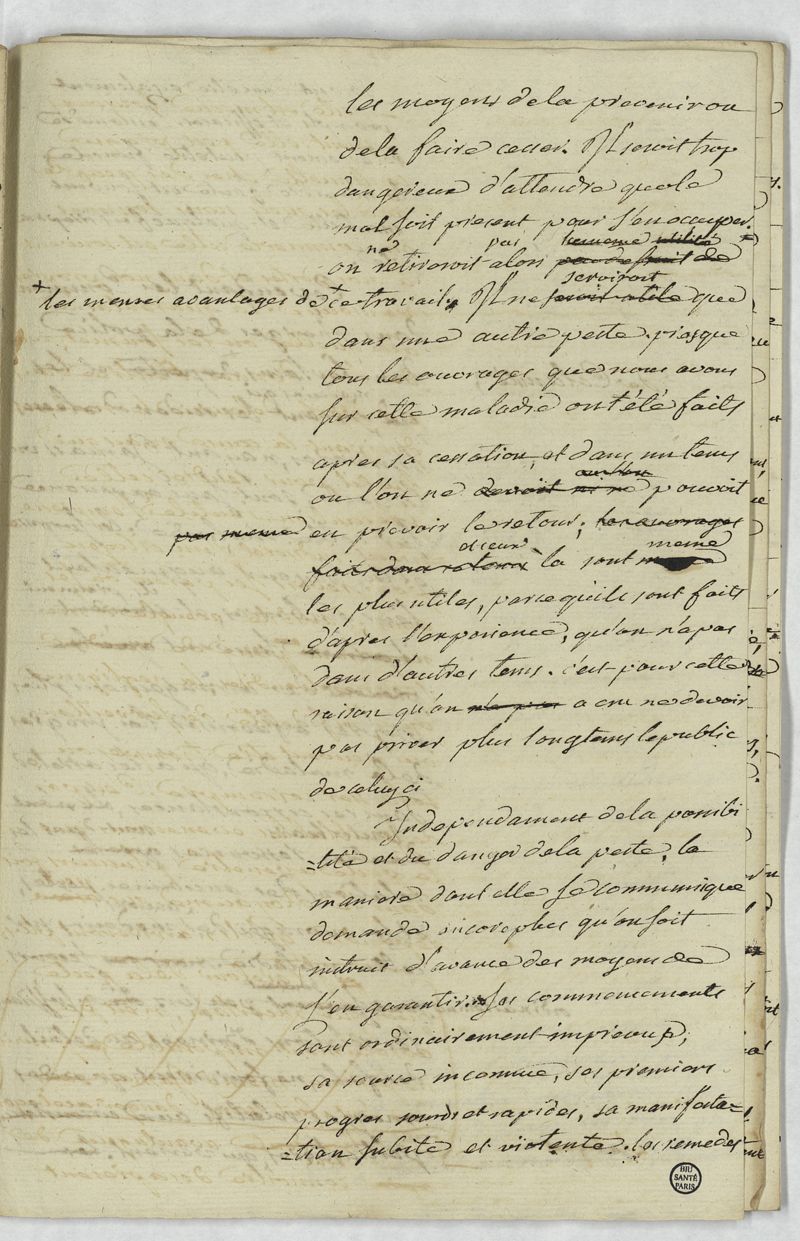 les moyens de la prevenir ou
de la faire cesser. Il seroit trop
dangereux d'attendre que le
mal soit present pour s'en occuper.
ne pas la meme utilité +
on retireroit alors
serviroit
+ les memes avantages de + ce travail. Il ne seroit utile que
dans une autre peste. presque
tous les ouvrages que nous avons
sur cette maladie ont été faits
apres sa cessation, et dans un tems
ou l'on ne devoit ni ne pouvoit
pas meme en prevoir le retour; les ouvrages
et ceux meme
faits dans ce tems la sont
les plus utiles, parce qu'ils sont faits
d'apres l'experience, qu'on n'a pas
dans d'autres tems. c'est pour cette
raison qu'on n'a pas a cru ne devoir
pas priver plus longtems le public
de celuy ci
Independament de la possibi
=lité et du danger de la peste, la
maniere dont elle se communique
demande encore plus qu'on soit
instruit d'avance des moyens de
s'en garantir. Ses commencements
sont ordinairement imprevus,
sa source inconnue, ses premiers
progres sourds et rapides, sa manifesta=
=tion subite et violente. les remedes
BIU
SANTÉ
PARIS